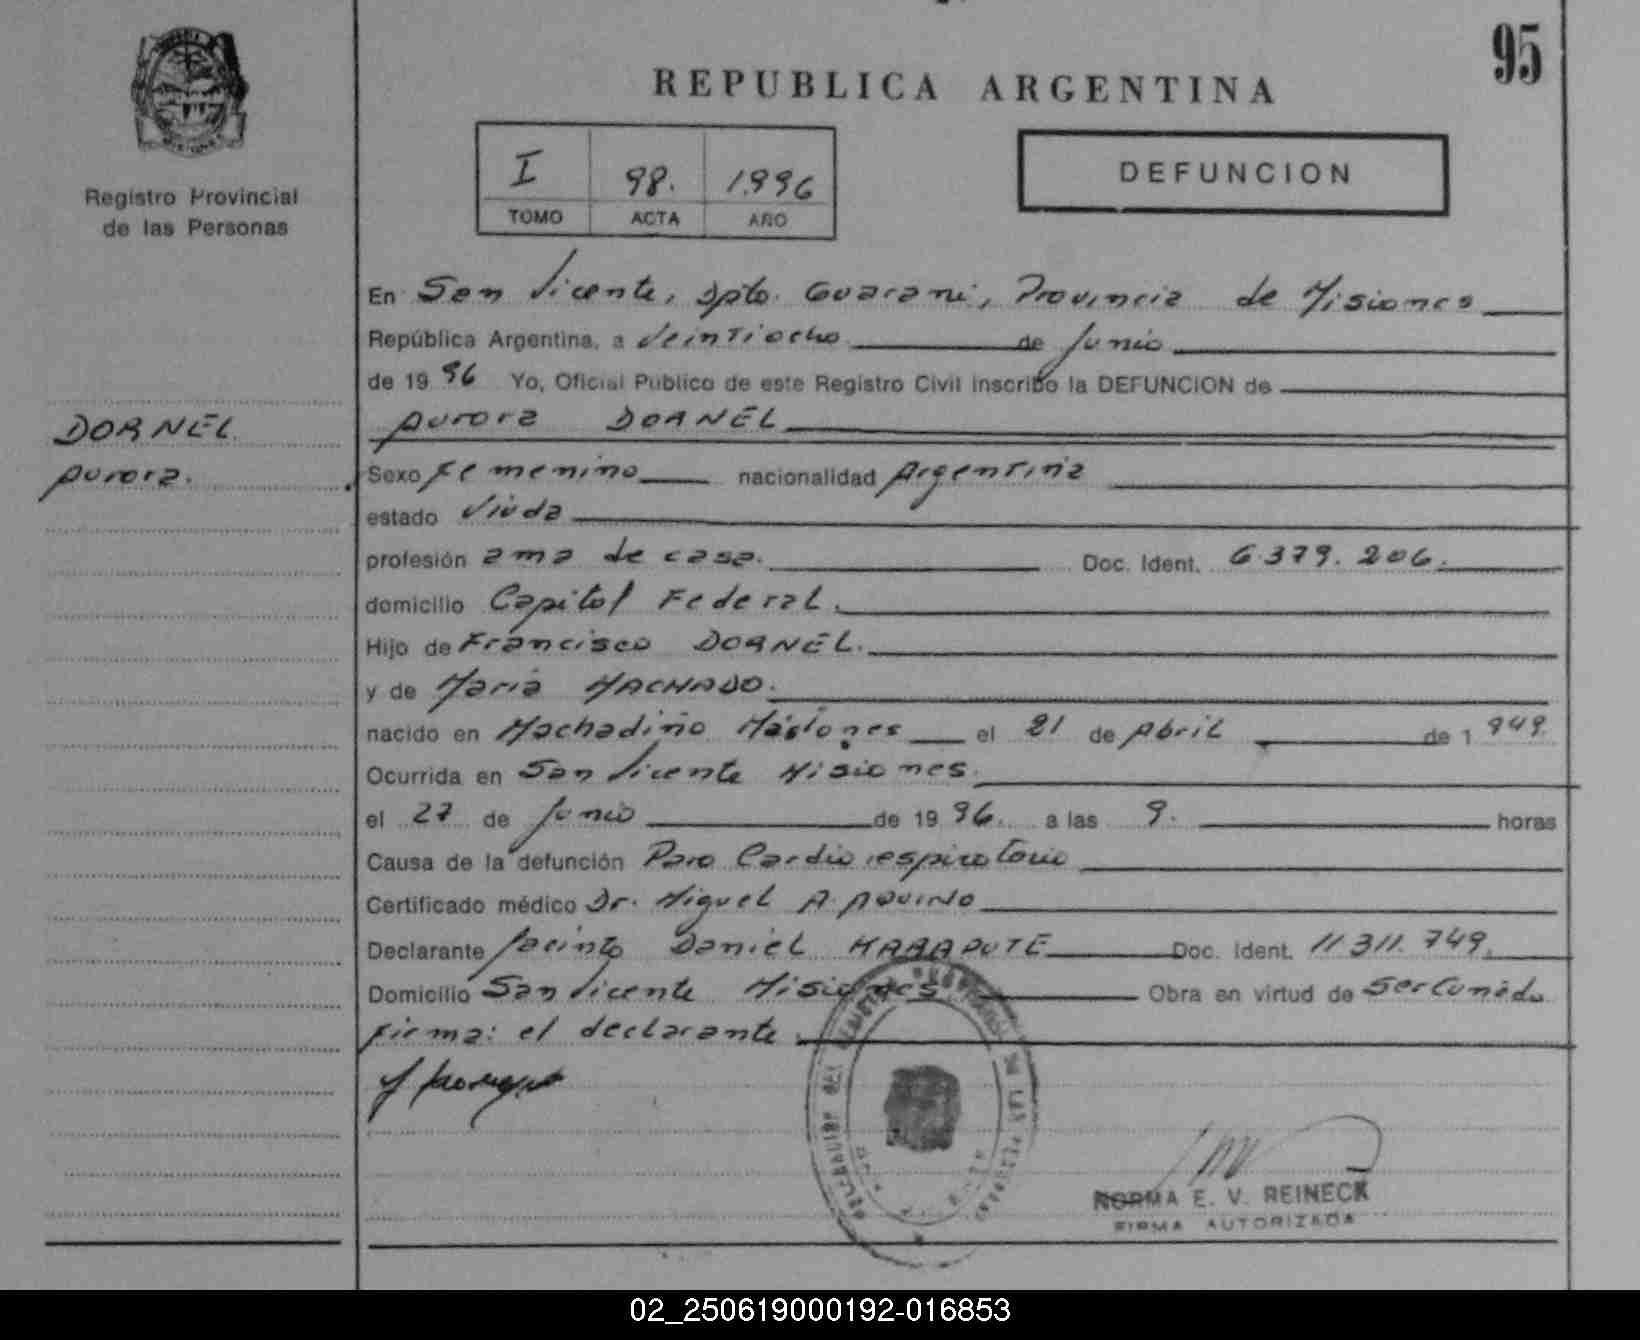 95
REPUBLICA ARGENTINA
I 98. 1996
TOMO ACTA AÑO
DEFUNCION
Registro Provincial
de las Personas
DORNEL
Aurora.
En San Vicente, Dpto. Guarani, Provincia de Misiones
República Argentina, a Veintiocho de Junio
de 1996 Yo, Oficial Público de este Registro Civil inscribo la DEFUNCION de
Aurora DORNEL
Sexo Femenino nacionalidad Argentina
estado Viuda
profesión ama de casa. Doc. Ident. 6.379.206.
domicilio Capital Federal.
Hijo de Francisco DORNEL.
y de Maria MACHADO.
nacido en Machadiño Misiones el 21 de Abril de 1949.
Ocurrida en San Vicente Misiones.
el 27 de Junio de 1996. a las 9. horas
Causa de la defunción Paro Cardio respiratorio
Certificado médico Dr. Miguel A. AQUINO
Declarante Jacinto Daniel Doc. Ident. 11.311.749.
Domicilio San Vicente Misiones Obra en virtud de
Firma: el declarante
NORMA E. V. REINECK
FIRMA AUTORIZADA
02_250619000192-016853